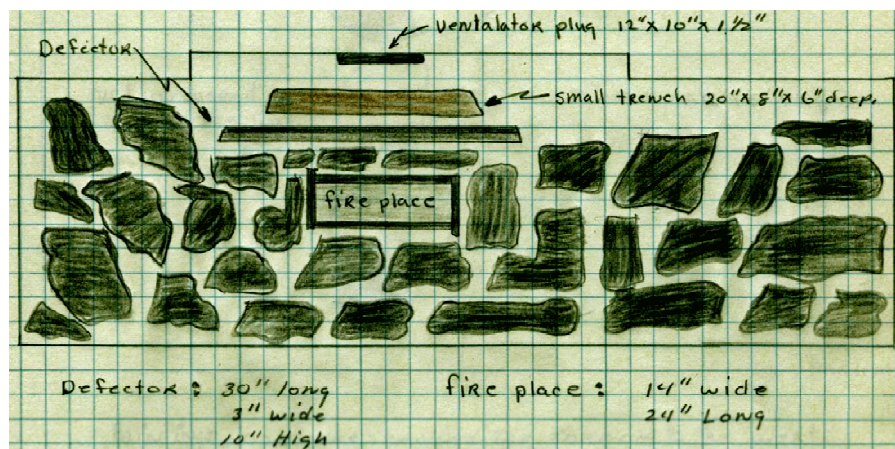 Ventalator plug 12" x 10" x 1 1/2"
Defector
small trench 20" x 8" x 6" deep.
fire place
Defector : 30" long
3" wide
10" High
fire place : 14" wide
24" Long